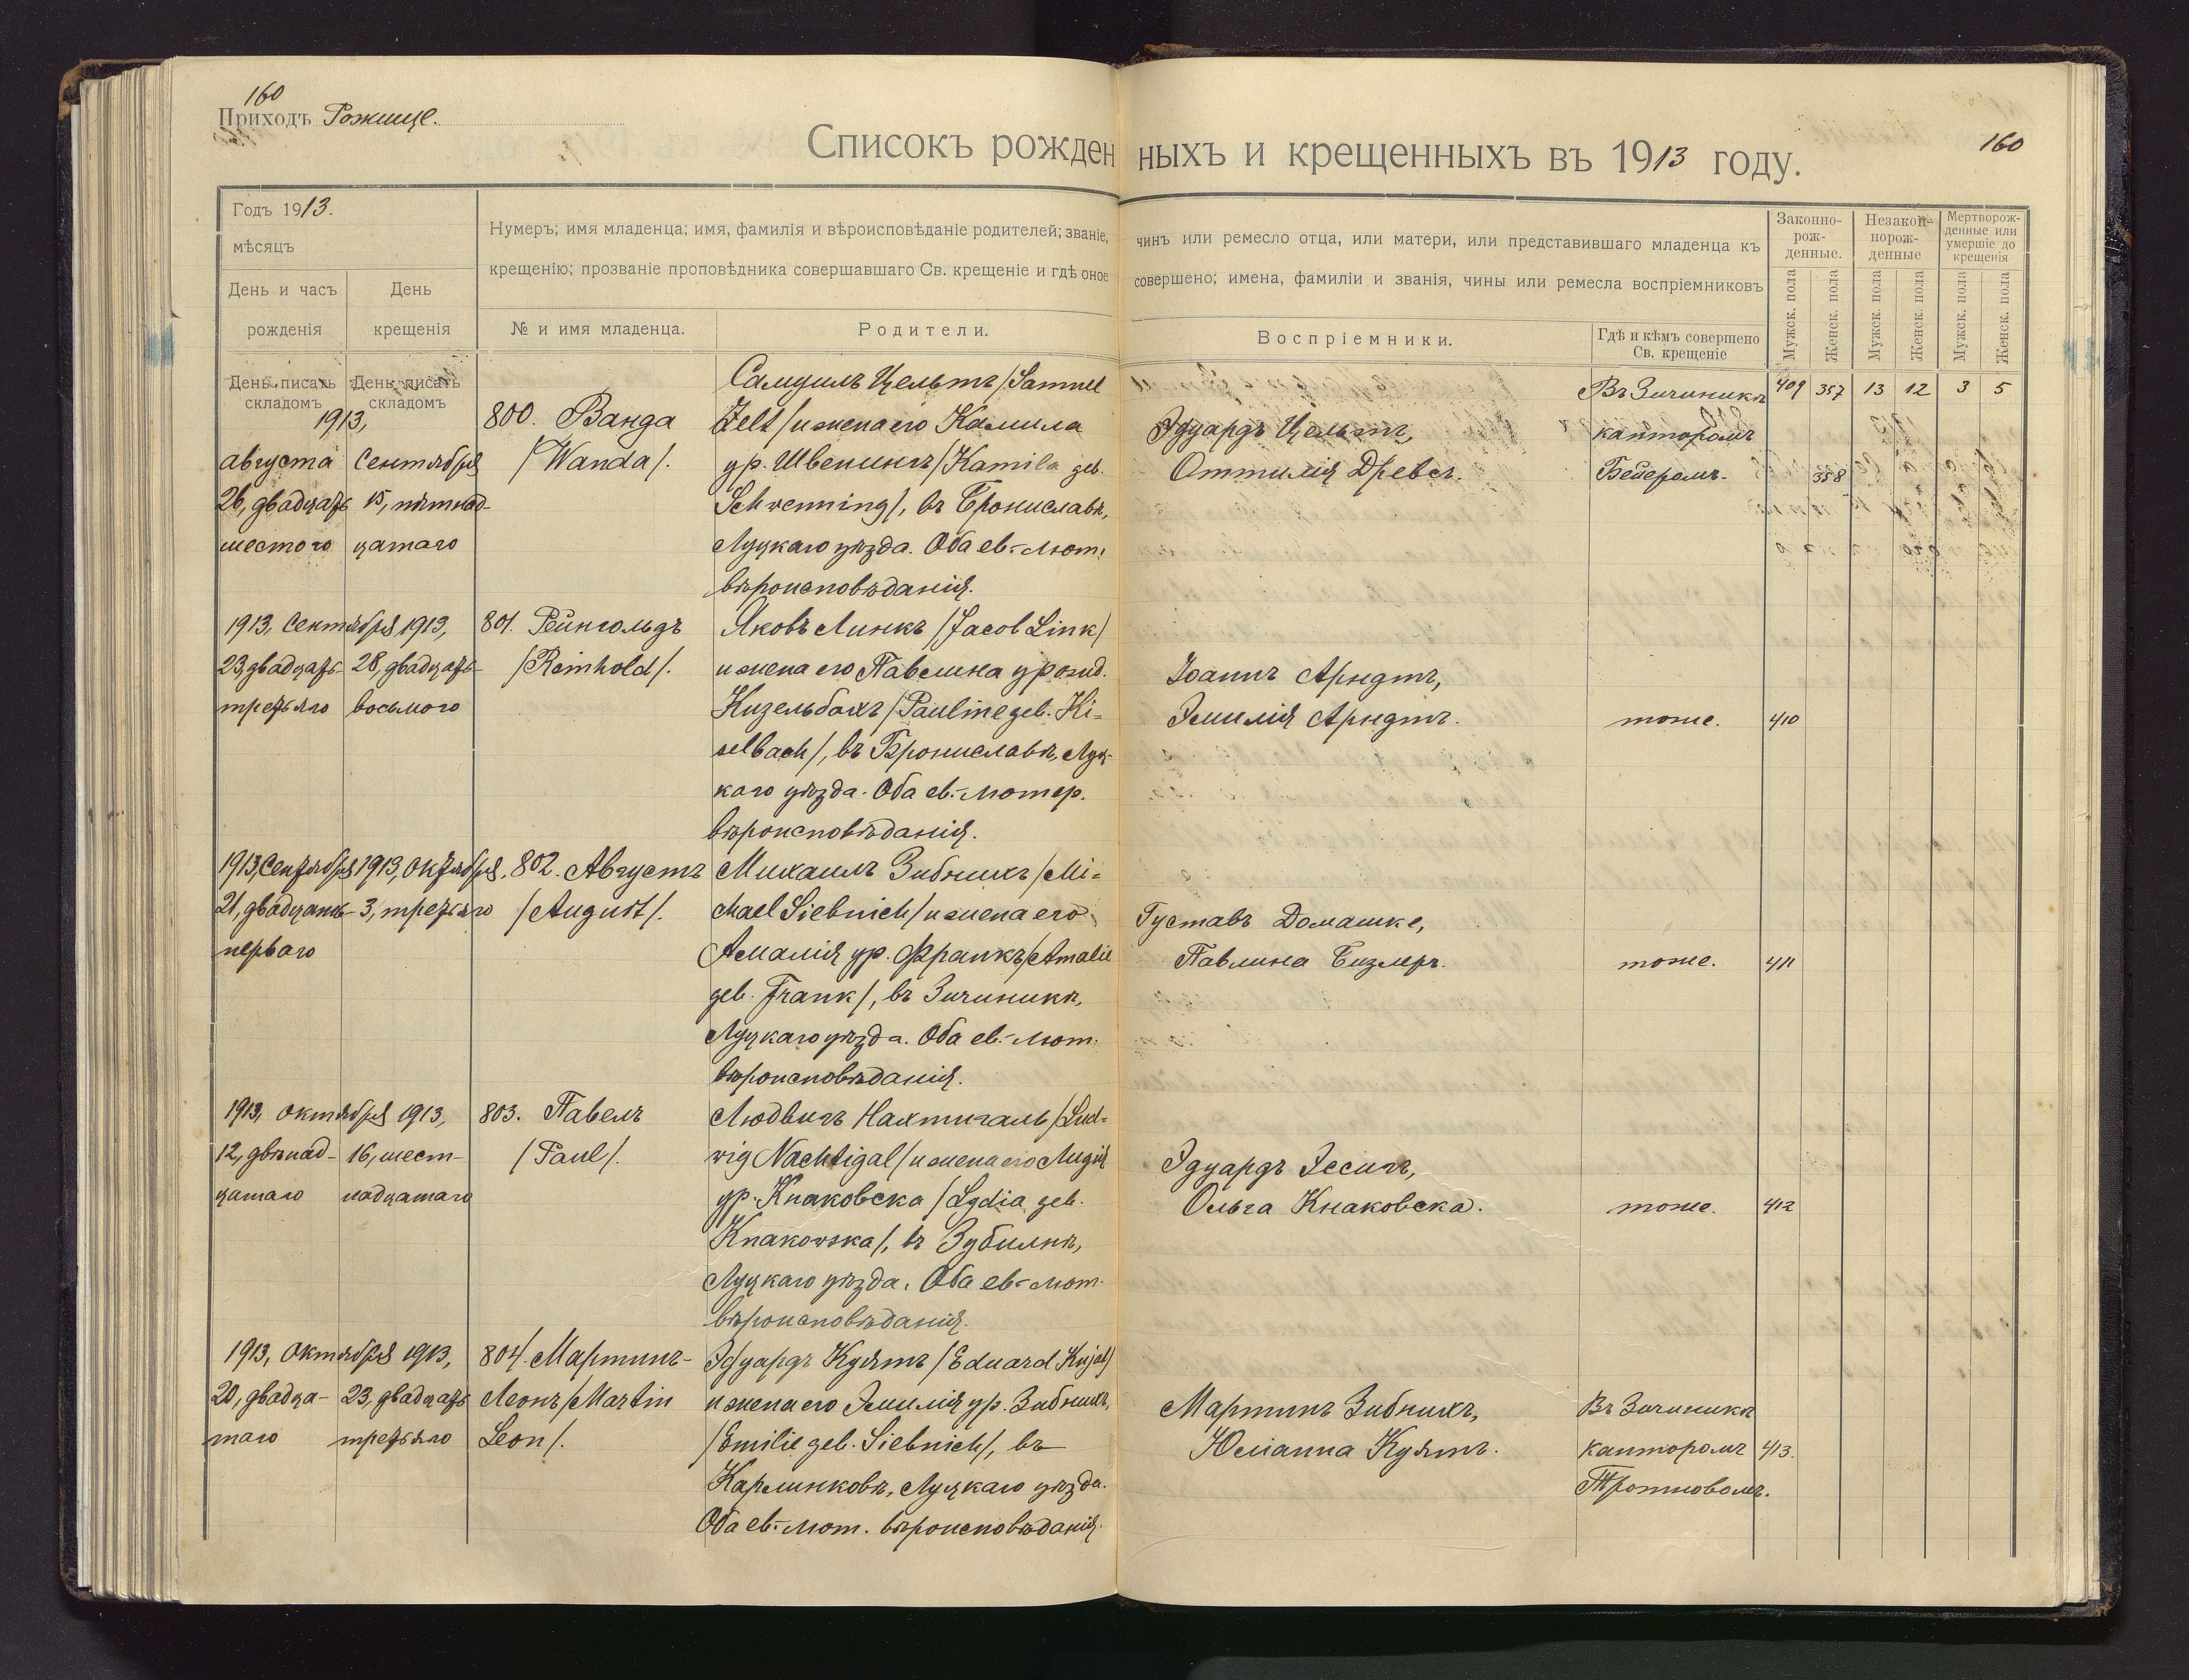 160
Приходъ Рожище.
Списокъ рожденныхъ и крещенныхъ въ 1913 году.
160
Годъ 1913.
мѣсяцъ
День и часъ рожденія
День крещенія
Нумеръ; имя младенца; имя, фамилія и вѣроисповѣданіе родителей; званіе, чинъ или ремесло отца, или матери, или представившаго младенца къ
крещенію; прозваніе проповѣдника совершавшаго Св. крещеніе и гдѣ оное совершено; имена, фамиліи и званія, чины или ремесла воспріемниковъ
№ и имя младенца.
Родители.
Воспріемники.
Гдѣ и кѣмъ совершено
Св. крещеніе
Законно-
рож-
денные.
Незакон-
норож-
денные
Мертворож-
денные или
умершіе до
крещенія
Мужск. пола
Женск. пола
Мужск. пола
Женск. пола
Мужск. пола
Женск. пола
День писать
складомъ
День писать
складомъ
409 357 13 12 3 5
1913,
августа
26, двадцать
шестого
Сентября
15, пятнад-
цатаго
800. Ванда
/Wanda/.
Самуилъ Цельтъ /Samuel
Zelt/ и жена его Камила
ур. Швенингъ /Kamila geb.
Schwenning/, въ Брониславѣ,
Луцкаго уѣзда. Оба ев.-лют.
вѣроисповѣданія.
Эдуардъ Цельтъ,
Оттилія Древсъ.
Въ Зичиникѣ
канторомъ
Бейеромъ.
358
1913, Сентября
23, двадцать-
третьяго
1913,
28, двадцать-
восьмого
801. Рейнгольдъ
/Reinhold/.
Яковъ Линкъ /Jacob Link/
и жена его Павлина урожд.
Кизельбахъ /Pauline geb. Ki-
selbach/, въ Брониславѣ, Луц-
каго уѣзда. Оба ев.-лютер.
вѣроисповѣданія.
Іоаннъ Арндтъ,
Эмилія Арндтъ.
тоже.
410
1913, Сентября
21, двадцать-
перваго
1913, Октября,
3, третьяго
802. Августъ
/August/.
Михаилъ Зибнихъ /Mi-
chael Siebnich/ и жена его
Амалія ур. Франкъ /Amalie
geb. Frank/, въ Зичиникѣ,
Луцкаго уѣзда. Оба ев.-лют.
вѣроисповѣданія.
Густавъ Домашке,
Павлина Бизлеръ.
тоже.
411
1913, Октября
12, двѣнад-
цатаго
1913,
16, шест-
надцатаго
803. Павелъ
/Paul/.
Людвигъ Нахтигаль /Lud-
wig Nachtigal/ и жена его Лидія
ур. Кнаковска /Lydia geb.
Knakowska/, въ Зубильнѣ,
Луцкаго уѣзда. Оба ев.-лют.
вѣроисповѣданія.
Эдуардъ Эссигъ,
Ольга Кнаковска.
тоже.
412
1913, Октября
20, двадца-
таго
1913,
23, двадцать
третьяго
804. Мартинъ-
Леонъ /Martin
Leon/.
Эдуардъ Куятъ /Eduard Kujat/
и жена его Эмилія ур. Зибнихъ,
/Emilie geb. Siebnich/, въ
Карлинковѣ, Луцкаго уѣзда.
Оба ев.-лют. вѣроисповѣданія.
Мартинъ Зибнихъ,
Юліанна Куятъ.
Въ Зичиникѣ
канторомъ
413.